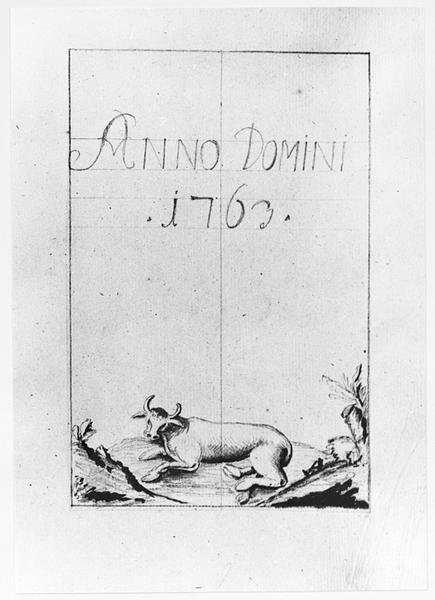 ANNO DOMINI
.1763.